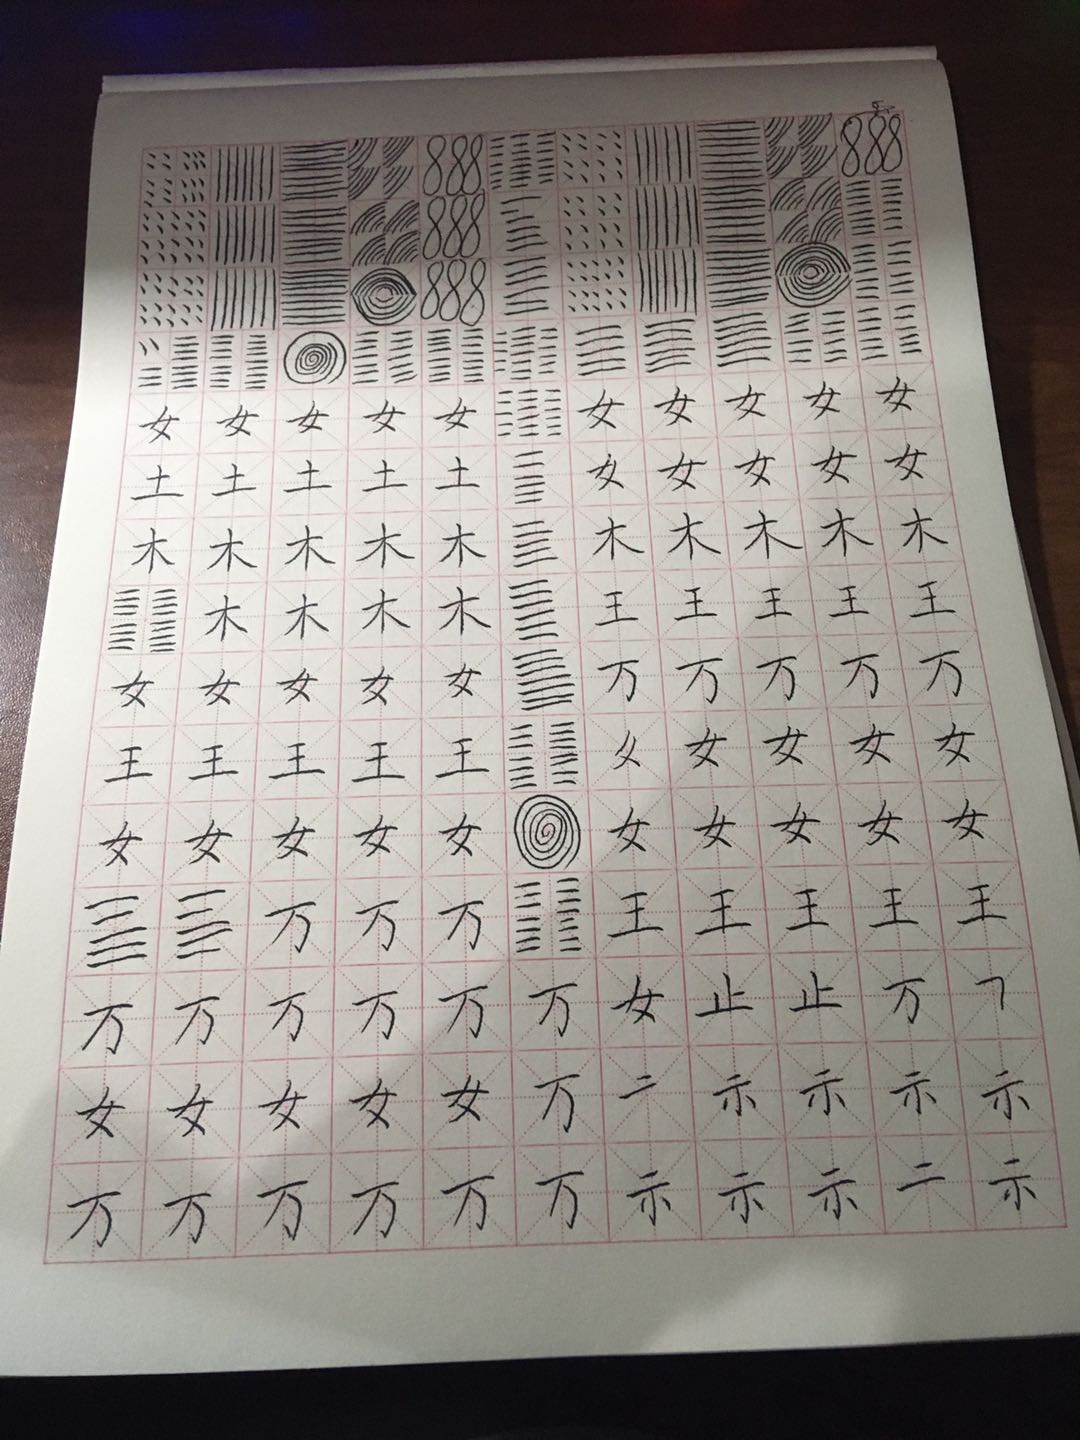 女女女女女女女女女女
土土土土土女女女女女
木木木木木木木木木木
木木木木王王王王王
女女女女女万万万万万
王王王王王女女女女
女女女女女女女女女女
万万万王王王王王
万万万万万万女止止万
女女女女女万二示示示示
万万万万万万示示示二示